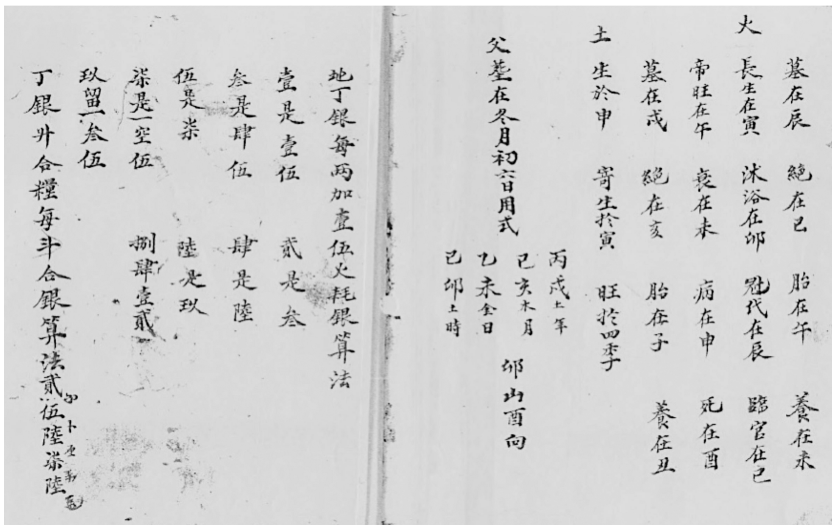 墓在辰 絕在巳 胎在午 養在未
火 長生在寅 沐浴在卯 冠代在辰 臨官在巳
帝旺在午 衰在未 病在申 死在酉
墓在戌 絕在亥 胎在子 養在丑
土 生於申 寄生於寅 旺於四季
父墓在冬月初六日用式
丙戌土年
己亥木月
乙未金日
己卯土時
卯山酉向
地丁銀每兩加壹伍火耗銀算法
壹是壹伍 貳是叁
叁是肆伍 肆是陸
伍是柒 陸是玖
柒是一空伍 捌肆壹貳
玖留一叁伍
丁銀升合糧每斗合銀算法貳伍陸柒陸